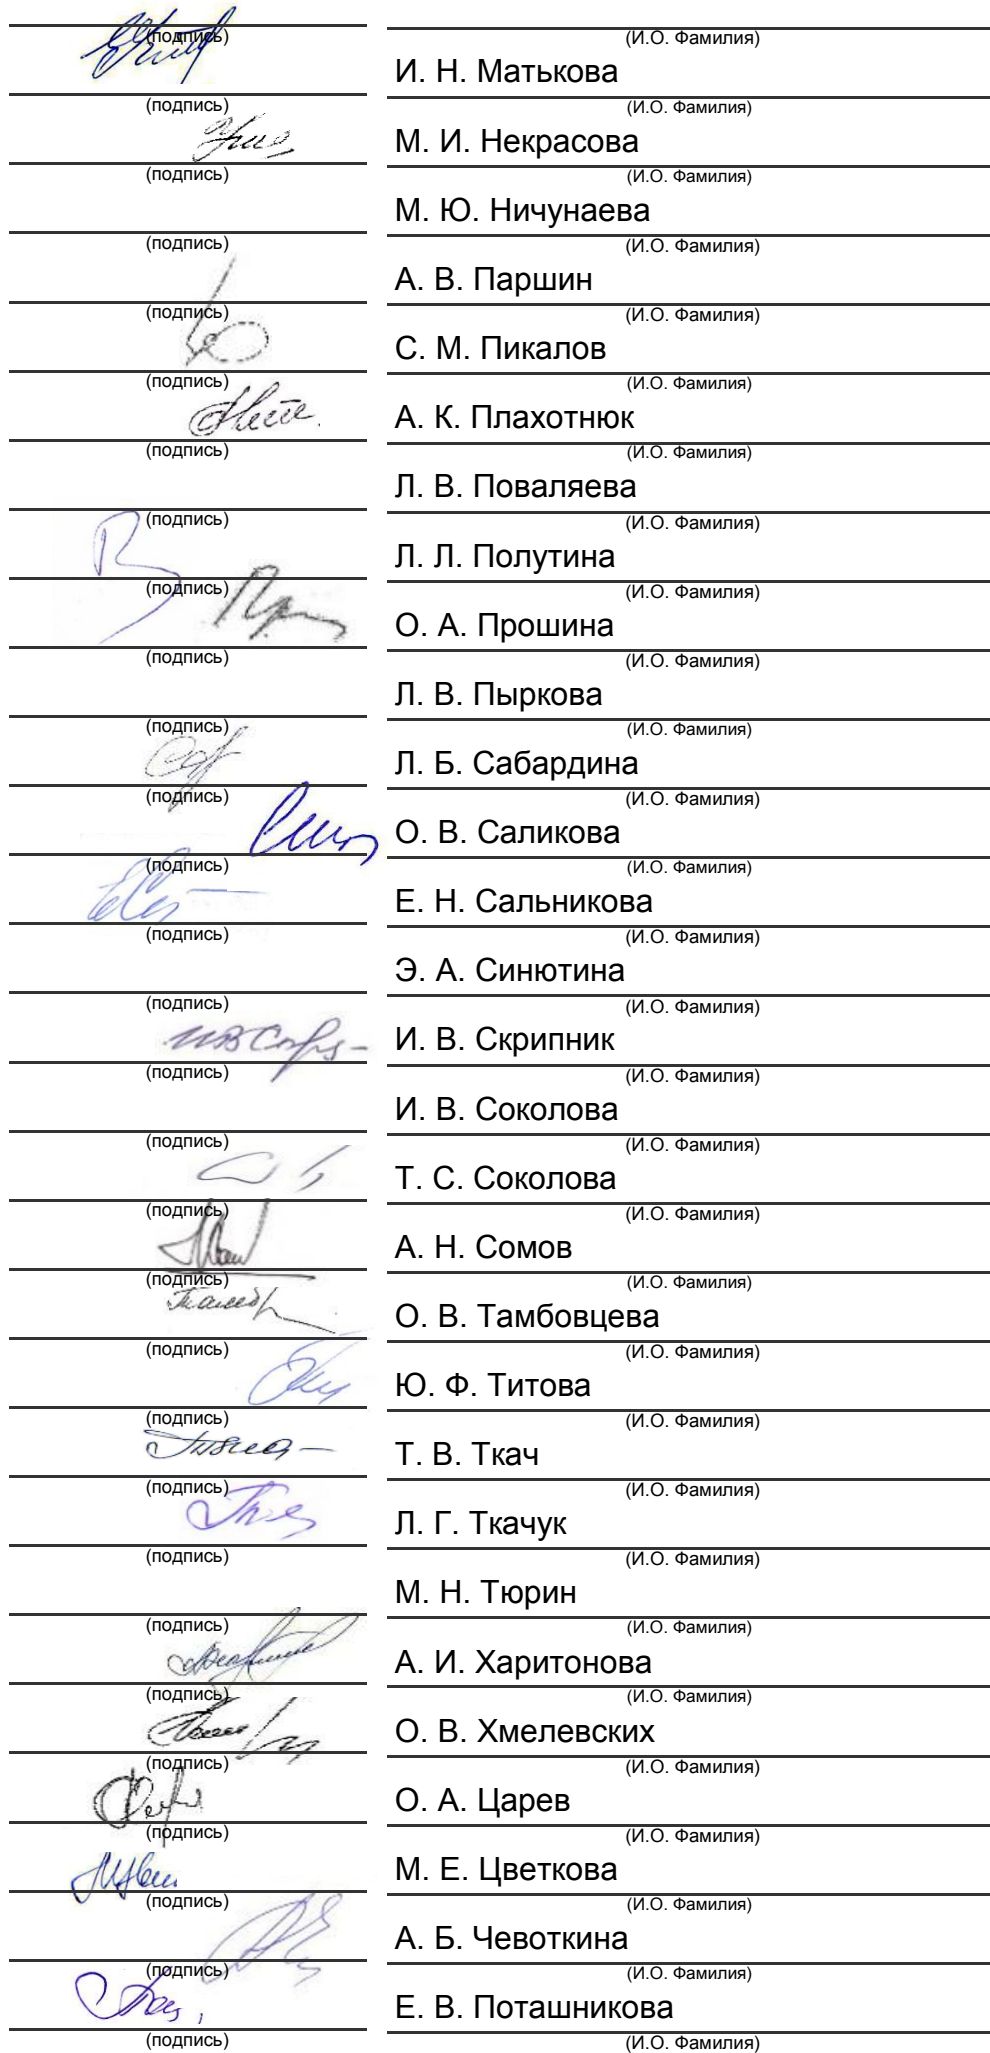 (подпись) (И.О. Фамилия)
И. Н. Матькова
(подпись) (И.О. Фамилия)
М. И. Некрасова
(подпись) (И.О. Фамилия)
М. Ю. Ничунаева
(подпись) (И.О. Фамилия)
А. В. Паршин
(подпись) (И.О. Фамилия)
С. М. Пикалов
(подпись) (И.О. Фамилия)
А. К. Плахотнюк
(подпись) (И.О. Фамилия)
Л. В. Поваляева
(подпись) (И.О. Фамилия)
Л. Л. Полутина
(подпись) (И.О. Фамилия)
О. А. Прошина
(подпись) (И.О. Фамилия)
Л. В. Пыркова
(подпись) (И.О. Фамилия)
Л. Б. Сабардина
(подпись) (И.О. Фамилия)
О. В. Саликова
(подпись) (И.О. Фамилия)
Е. Н. Сальникова
(подпись) (И.О. Фамилия)
Э. А. Синютина
(подпись) (И.О. Фамилия)
И. В. Скрипник
(подпись) (И.О. Фамилия)
И. В. Соколова
(подпись) (И.О. Фамилия)
Т. С. Соколова
(подпись) (И.О. Фамилия)
А. Н. Сомов
(подпись) (И.О. Фамилия)
О. В. Тамбовцева
(подпись) (И.О. Фамилия)
Ю. Ф. Титова
(подпись) (И.О. Фамилия)
Т. В. Ткач
(подпись) (И.О. Фамилия)
Л. Г. Ткачук
(подпись) (И.О. Фамилия)
М. Н. Тюрин
(подпись) (И.О. Фамилия)
А. И. Харитонова
(подпись) (И.О. Фамилия)
О. В. Хмелевских
(подпись) (И.О. Фамилия)
О. А. Царев
(подпись) (И.О. Фамилия)
М. Е. Цветкова
(подпись) (И.О. Фамилия)
А. Б. Чевоткина
(подпись) (И.О. Фамилия)
Е. В. Поташникова
(подпись) (И.О. Фамилия)